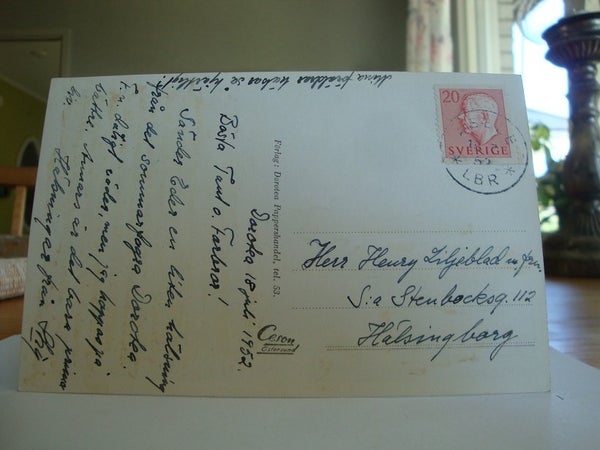 Dorotea 18 juli 1952.
Bästa Tant o. Farbror!
Sänder Eder en liten hälsning
från det sommarfagra Dorotea.
F.n. dåligt väder, men jag hoppas på
bättre. Annars är det bara prima
här.
Hälsningar från
Mina föräldrar hälsar så hjärtligt!
Förlag: Dorotea Pappershandel, tel. 53.
Ceron
Östersund
20
SVERIGE
LBR
Herr Henry Liljeblad m. fru
S:a Stenbocksg. 112
Hälsingborg